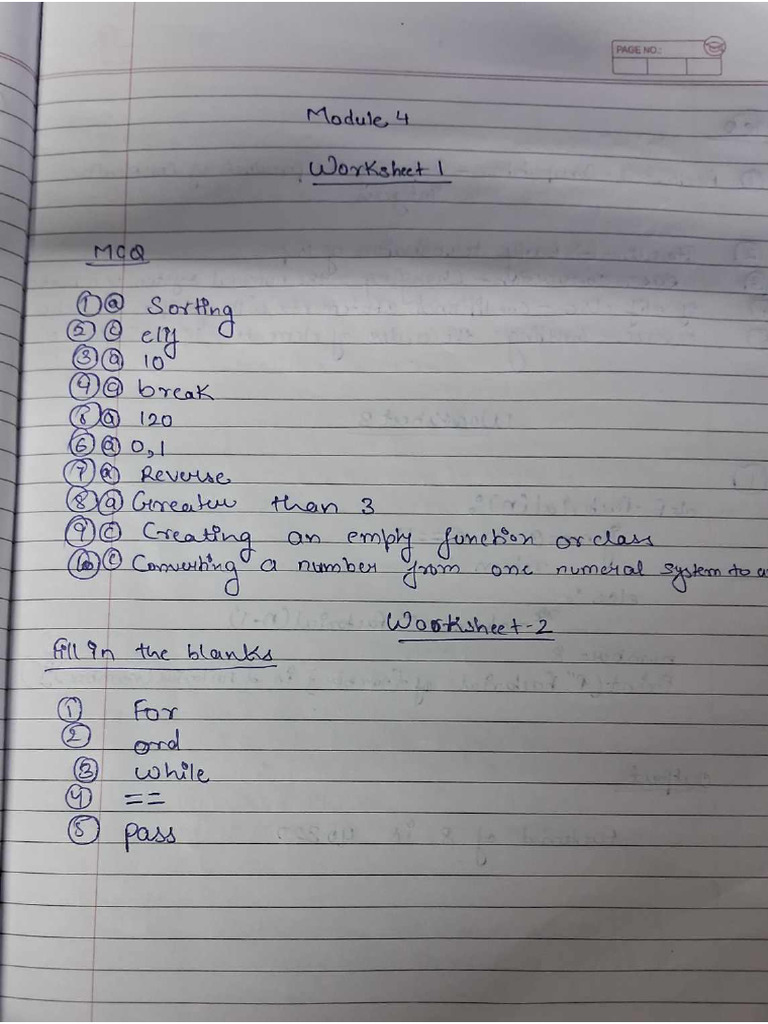 PAGE NO.:
Module 4
Worksheet 1
MCQ
① ⓐ Sorting
② ⓒ
③ ⓐ 10
④ break
⑤ ⓐ 120
⑥ ⓐ 0,1
⑦ ⓐ Reverse
⑧ ⓐ Greater than 3
⑨ ⓒ Creating an empty function or class
⑩ ⓒ Converting a number from one numeral system to
Worksheet-2
Fill in the blanks
① For
②
③ while
④ ==
⑤ pass